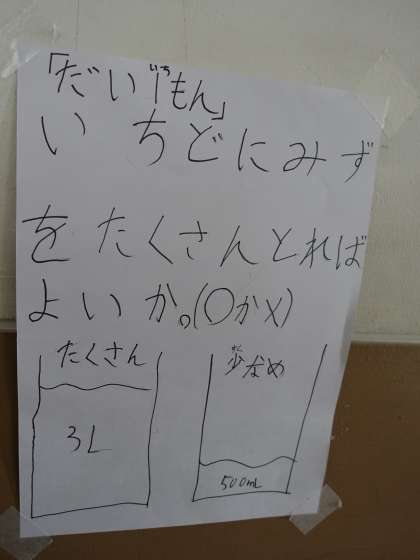 「だい1もん」
いち
いちどにみず
をたくさんとれば
よいか。(〇か×)
たくさん
3L
少なめ
すく
500mL